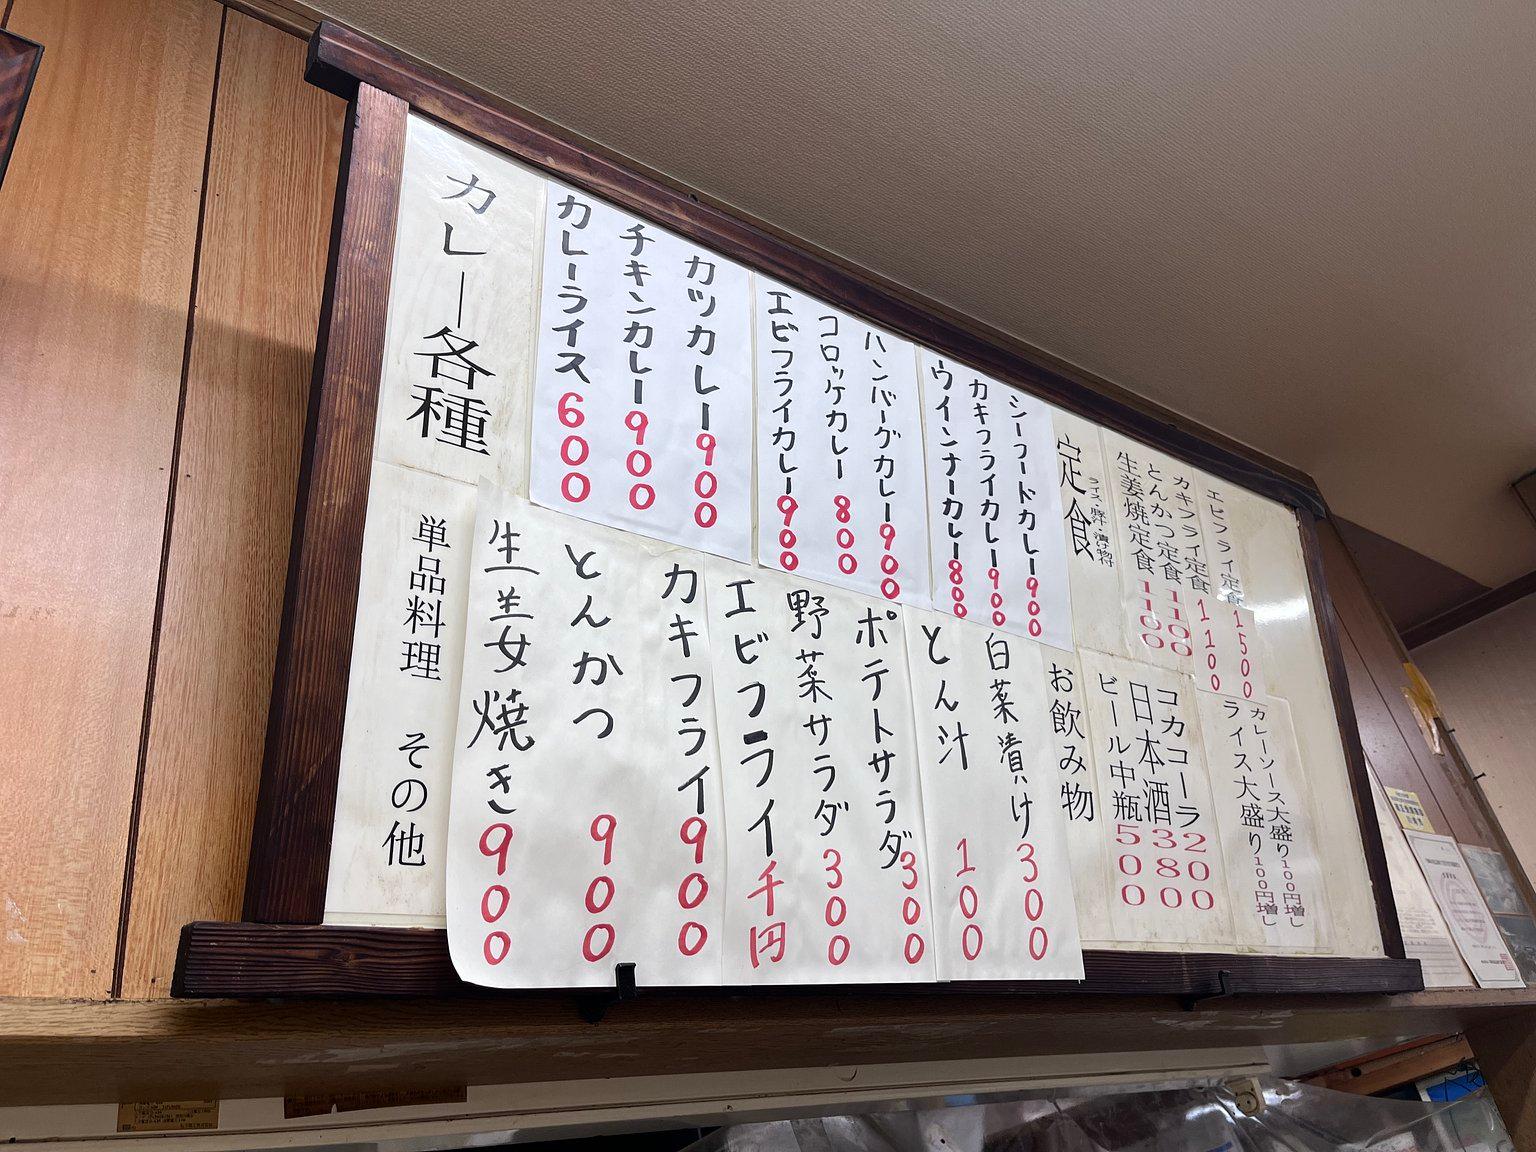 カレー各種
カレーライス600
チキンカレー900
カツカレー900
エビフライカレー900
コロッケカレー800
ハンバーグカレー900
ウインナーカレー800
カキフライカレー900
シーフードカレー900
定食
ライス・豚汁・漬け物付
生姜焼定食1100
とんかつ定食1100
カキフライ定食1100
エビフライ定食1500
単品料理 その他
生姜焼き900
とんかつ900
カキフライ900
エビフライ千円
野菜サラダ300
ポテトサラダ300
とん汁100
白菜漬け300
お飲み物
ビール中瓶500
日本酒380
コカコーラ200
ライス大盛り100円増し
カレーソース大盛り100円増し